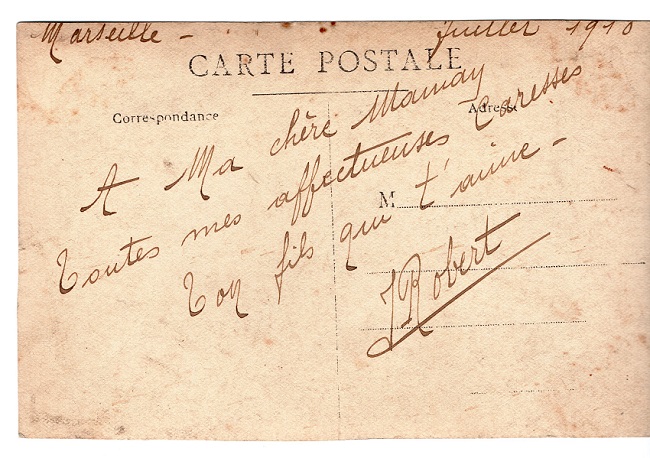 Marseille - Juillet 1910
CARTE POSTALE
Correspondance
Adresse
A Ma chère Maman
Toutes mes affectueuses Caresses
Ton fils qui t'aime -
M
Robert